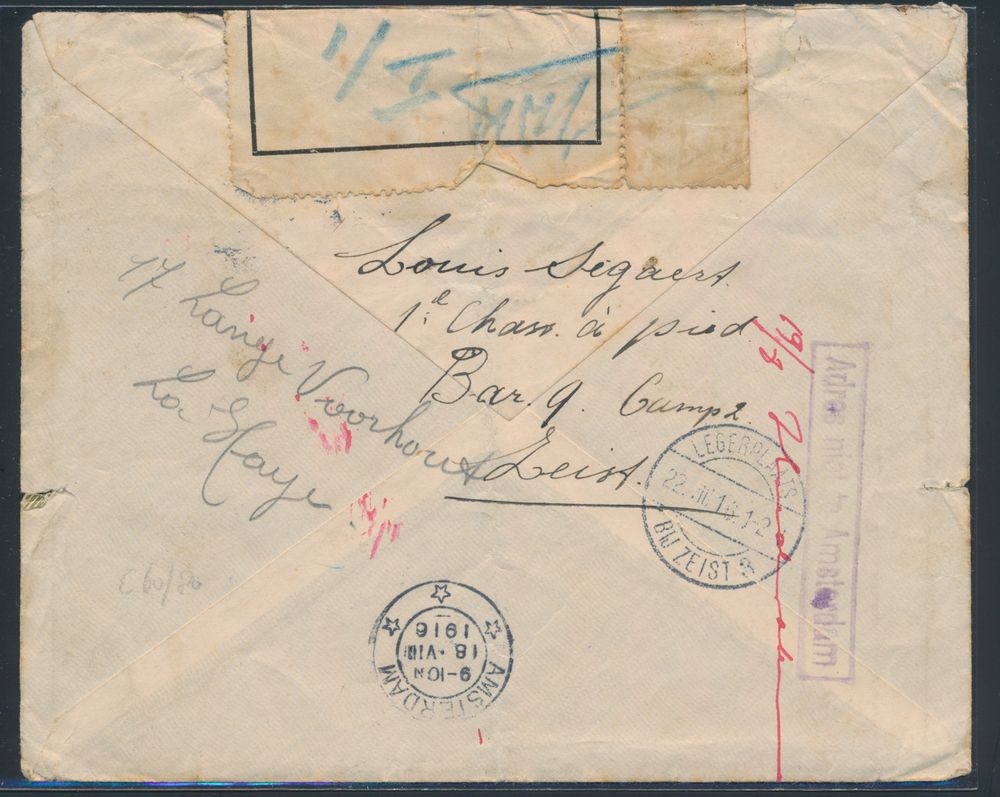 1/I
Louis Segaert.
1e. Chass. à pied.
Bar. 9. Camp 2.
Zeist.
17 Lange Voorhout
La Haye
19/8
Adres niet in Amsterdam
LEGERPLAATS
22. 1-2
BIJ ZEIST 3
AMSTERDAM
9-10N
18.VIII
1916
E 60/80